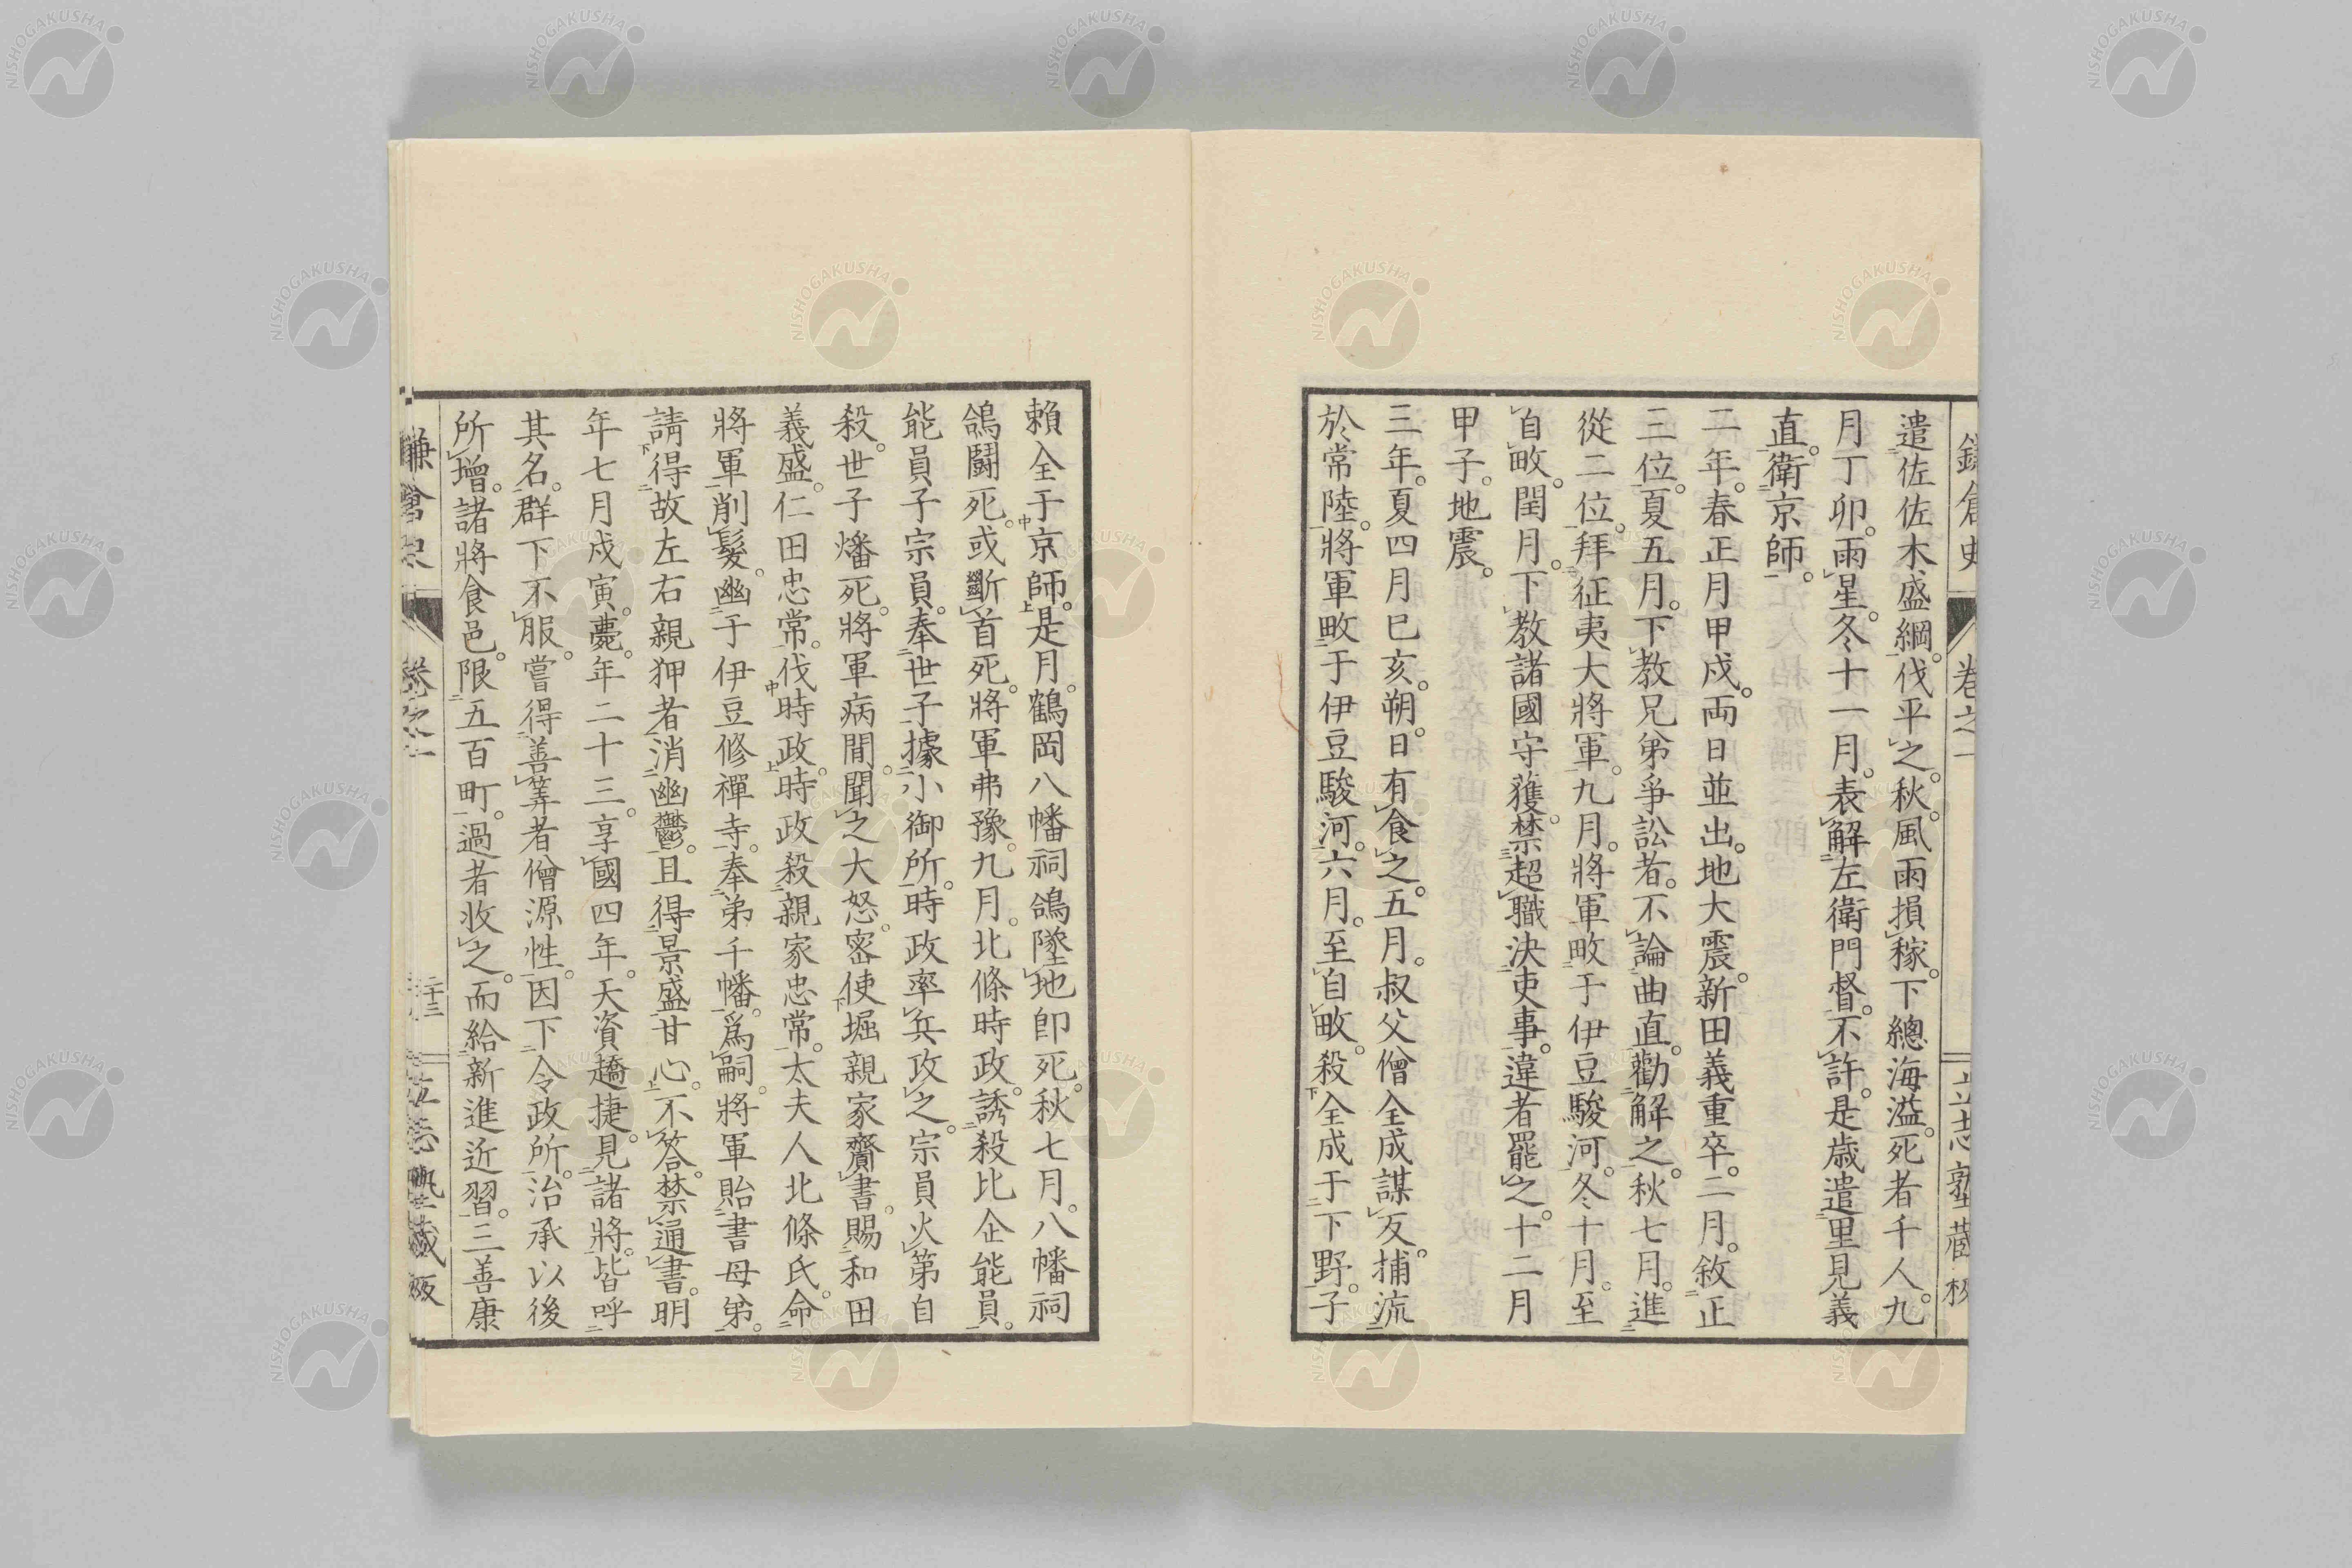 鎌倉史 卷之一 立志塾藏板
遣佐佐木盛綱。伐平之。秋。風雨損稼。下總海溢。死者千人。九
月丁卯。雨星。冬十一月。表解左衛門督。不許。是歳遣里見義
直。衛京師。
二年。春正月甲戌。両日並出。地大震。新田義重卒。二月。敘正
三位。夏五月。下教兄弟爭訟者。不論曲直。勸解之。秋七月。進
從二位。拜征夷大將軍。九月。將軍畋于伊豆駿河。冬十月。至
自畋。閏月。下教諸國守護。禁超職決吏事。違者罷之。十二月
甲子。地震。
三年。夏四月巳亥。朔。日有食之。五月。叔父僧全成謀反。捕流
於常陸。將軍畋于伊豆駿河。六月。至自畋。殺全成于下野。子
賴全于京師。是月。鶴岡八幡祠鴿墜地即死。秋七月。八幡祠
鴿鬪死。或斷首死。將軍弗豫。九月。北條時政。誘殺比企能員。
能員子宗員。奉世子據小御所。時政率兵攻之。宗員火第自
殺。世子燔死。將軍病間。聞之大怒。密使堀親家齎書。賜和田
義盛。仁田忠常。伐時政。時政殺親家忠常。太夫人北條氏。命
將軍削髮。幽于伊豆修禪寺。奉弟千幡。爲嗣。將軍貽書母弟。
請得故左右親狎者消幽鬱。且得景盛甘心。不答。禁通書。明
年七月戍寅。薨。年二十三。享國四年。天資趫捷。見諸將。皆呼
其名。群下不服。嘗得善筭者僧源性。因下令政所。治承以後
所增。諸將食邑。限五百町。過者收之。而給新進近習。三善康
鎌倉史 卷之一 二十三 立志塾藏板